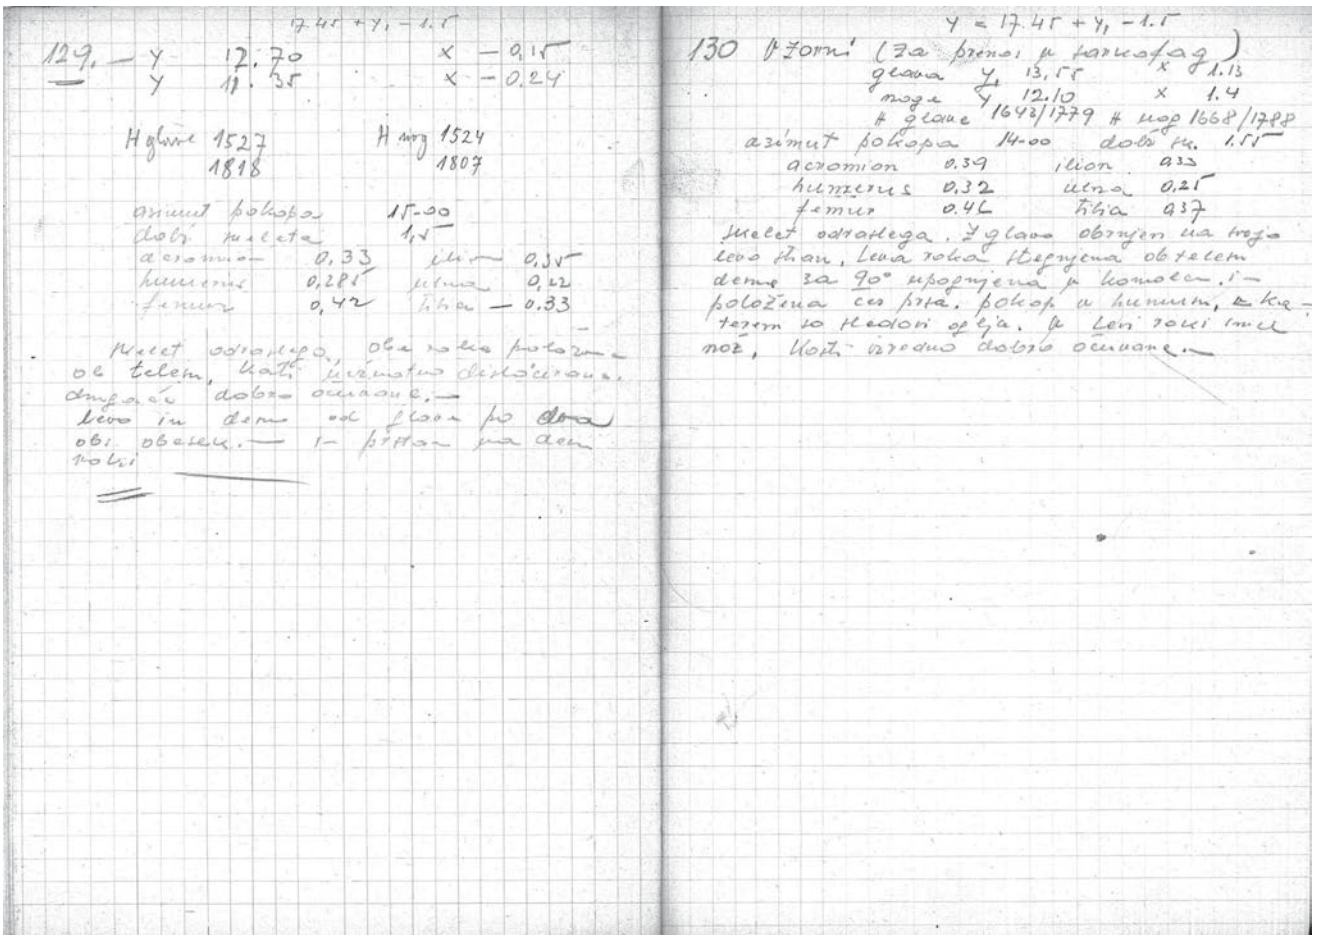 17.45 + y, - 1.5
129. — y 17.70 x - 0,15
y 11.35 x - 0.24
H glave 1527 H nog 1524
1818 1807
azimut pokopa 15-00
dolž skeleta 1,5
acromion 0,33 ilion 0,35
humerus 0,285 ulna 0,22
femur 0,42 tibia — 0.33
skelet odraslega, obe roke položene
ob telesu, kosti dislocirane,
drugače dobro očuvane. —
levo in desno od glave po dva
obs. obeseka. — 1- prstan na desni
roki
y = 17.45 + y, - 1.5
130 Vzorni (za prenos v sarkofag)
glava y, 13,55 x 1.13
noge y 12.10 x 1.4
H glave 1643/1779 H nog 1668/1788
azimut pokopa 14-00 dolž sk. 1.55
acromion 0.39 ilion 0.33
humerus 0,32 ulna 0,25
femur 0.46 tibia 0.37
skelet odraslega. Z glavo obrnjen na svojo
levo stran, leva roka stegnjena ob telesu
desna za 90° upognjena v komolcu. i -
položena čez prsa. pokop v humusu, v ka-
terem so sledovi oglja. V levi roki ima
nož, Kosti izredno dobro očuvane. —